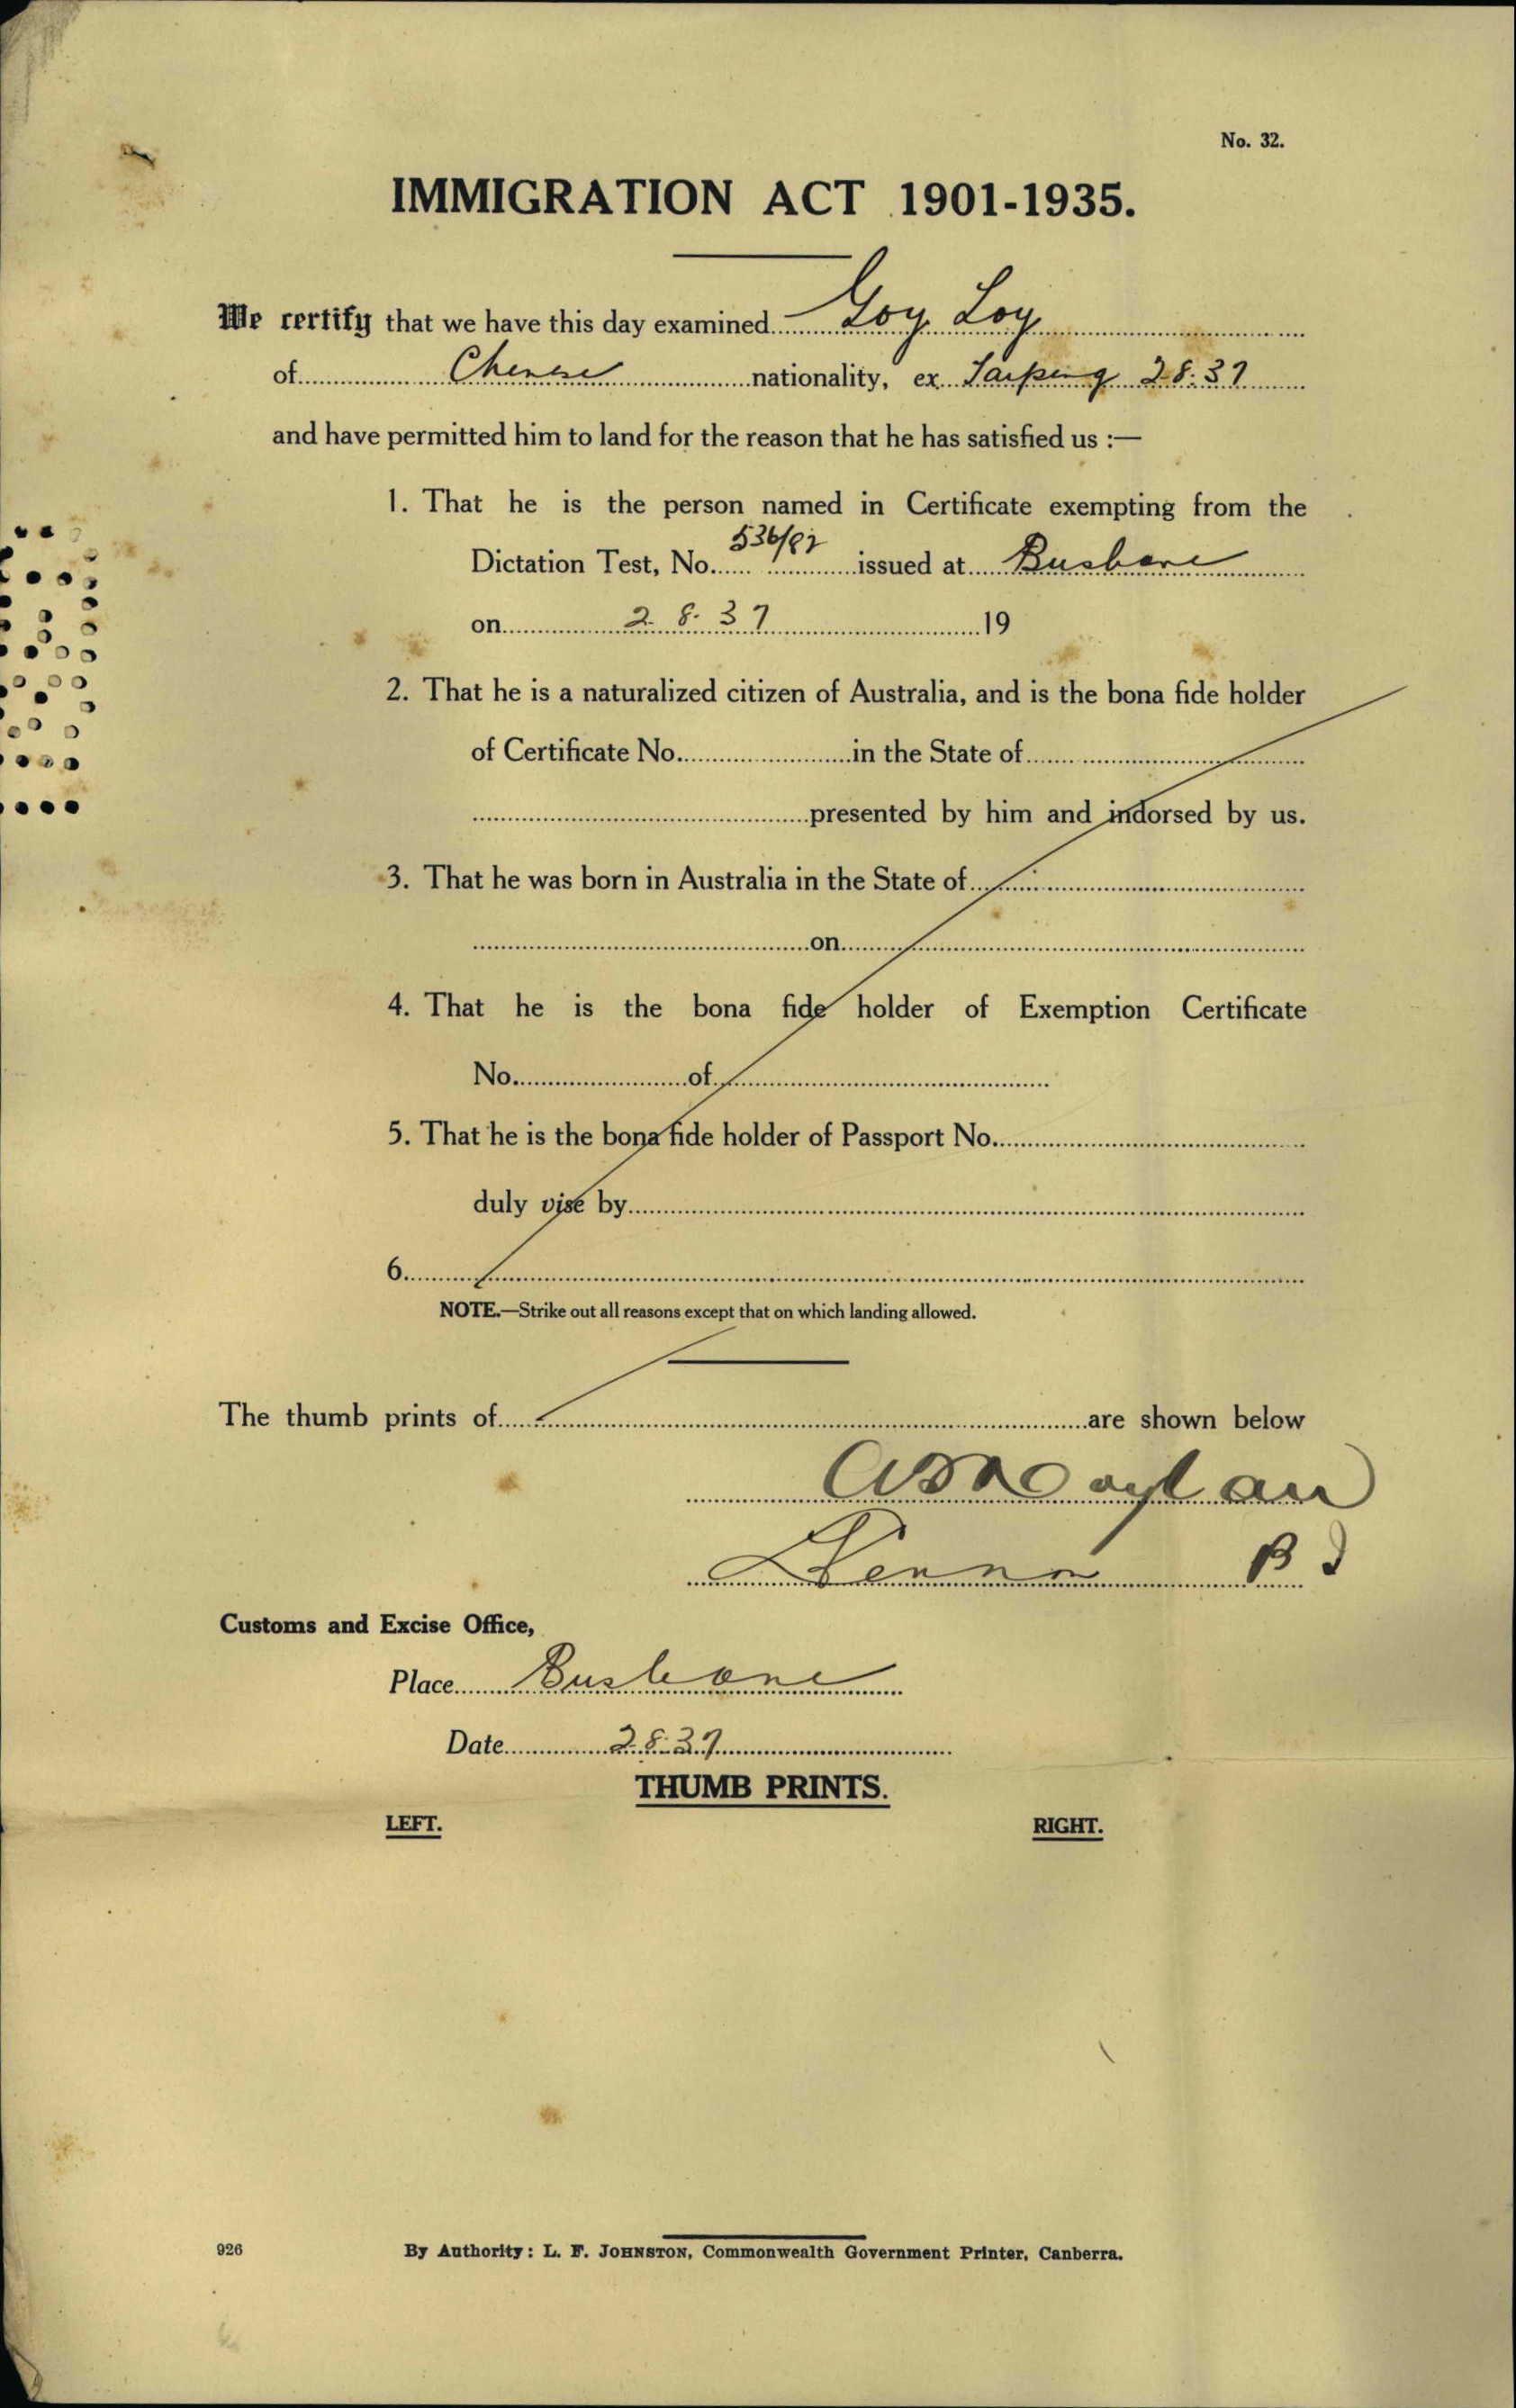 No. 32.
IMMIGRATION ACT 1901-1935.
We certify that we have this day examined Goy Loy
of Chinese nationality, ex Taiping 2.8.37
and have permitted him to land for the reason that he has satisfied us :—
1. That he is the person named in Certificate exempting from the
Dictation Test, No. 536/ issued at Brisbane
on 2. 8. 37 19
2. That he is a naturalized citizen of Australia, and is the bona fide holder
of Certificate No. in the State of
presented by him and indorsed by us.
3. That he was born in Australia in the State of
on
4. That he is the bona fide holder of Exemption Certificate
No. of
5. That he is the bona fide holder of Passport No.
duly visé by
6.
NOTE.—Strike out all reasons except that on which landing allowed.
The thumb prints of are shown below
Customs and Excise Office,
Place Brisbane
Date 2.8.37
THUMB PRINTS.
LEFT. RIGHT.
926 By Authority: L. F. JOHNSTON, Commonwealth Government Printer, Canberra.